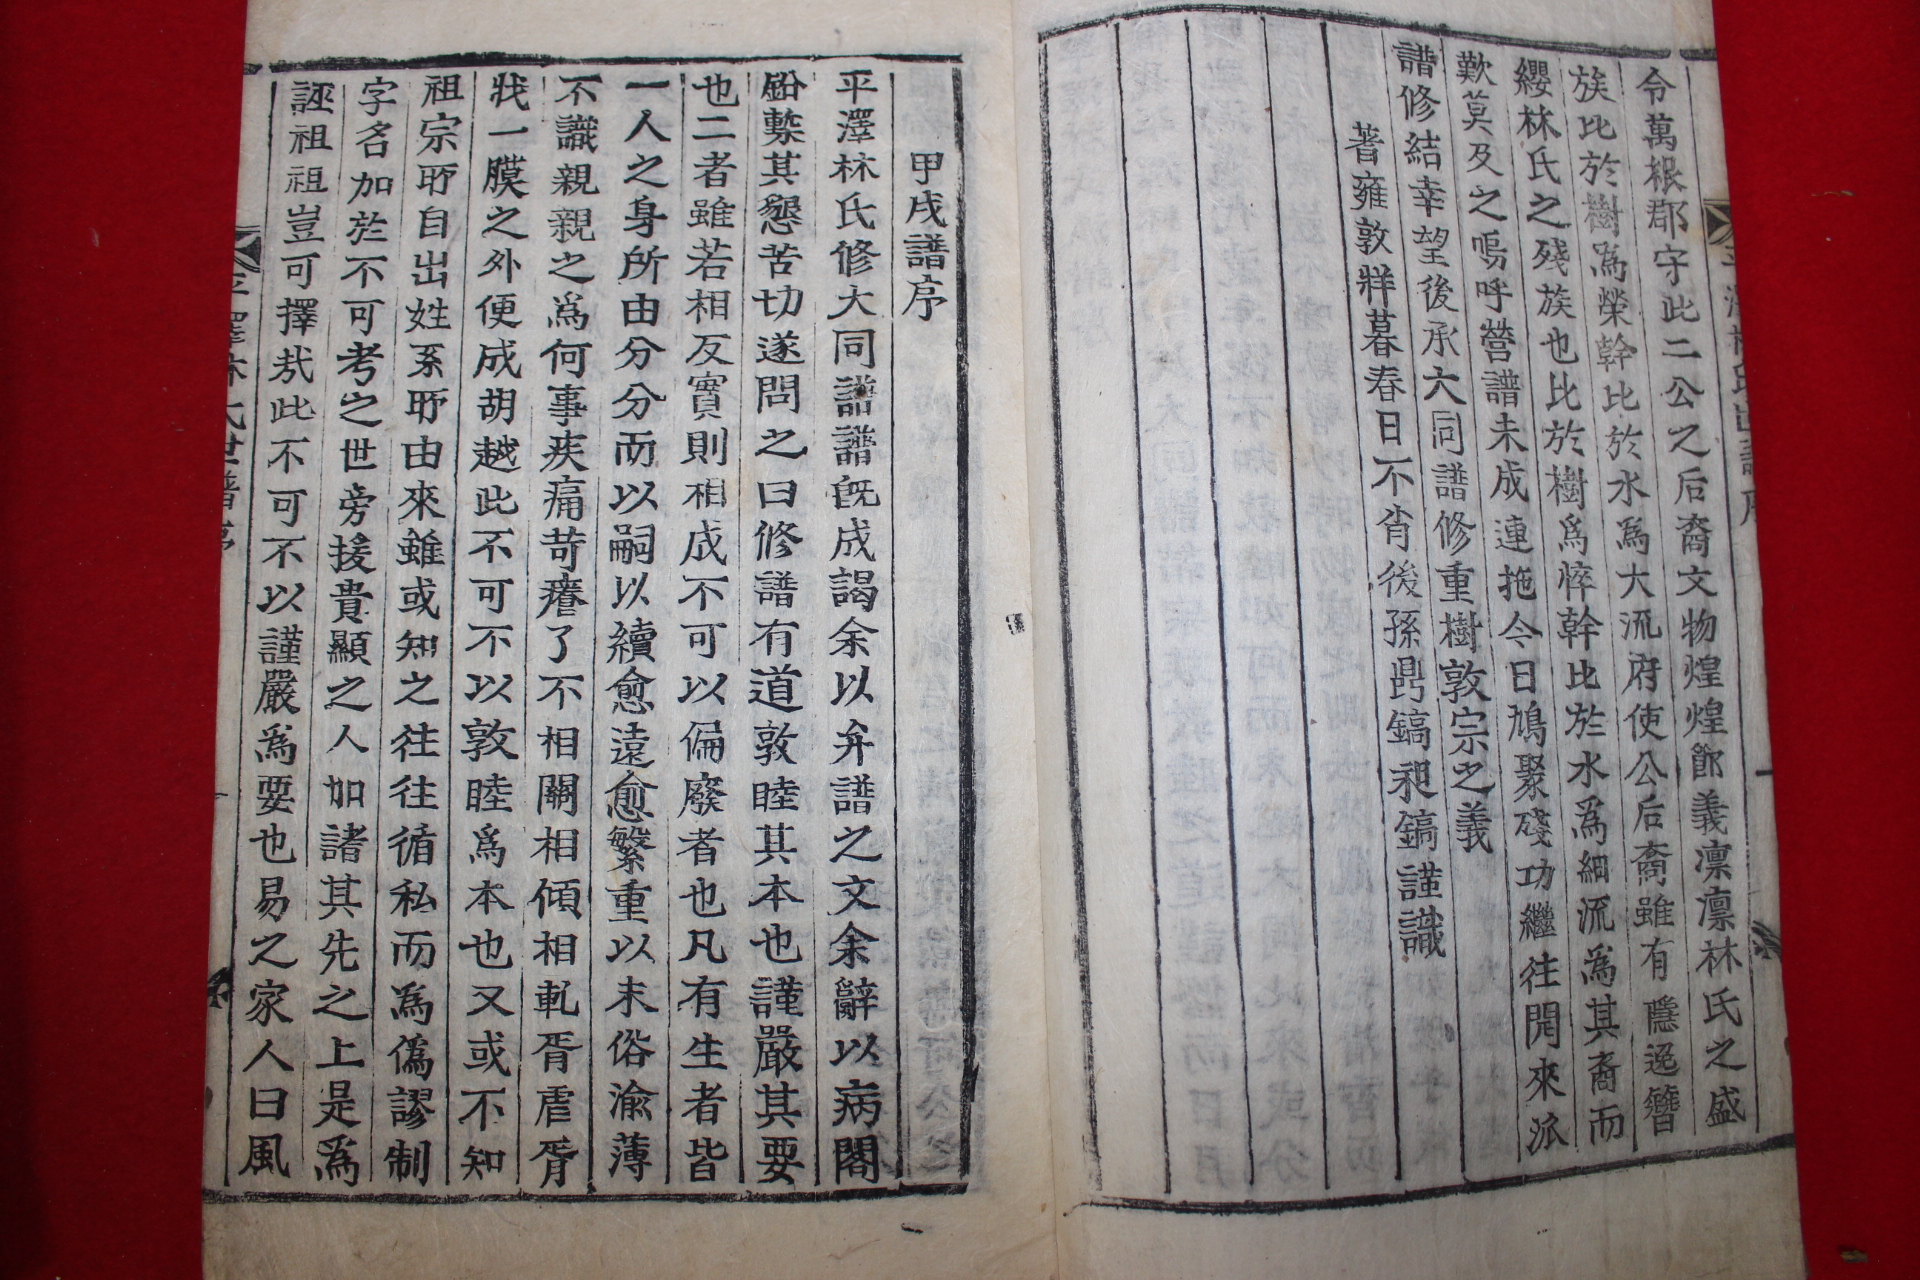 令萬根郡守此二公之后裔文物煌煌節義凛凛林氏之盛
族比於樹爲榮幹比於水爲大流府使公后裔雖有隱逸簪
纓林氏之殘族也比於樹爲悴幹比於水爲細流爲其裔而
歎莫及之嗚呼營譜未成連拖今日鳩聚殘功繼往開來派
譜修結幸望後承大同譜修重樹敦宗之義
著雍敦牂暮春日不肖後孫鎬昶鎬謹識
平澤林氏世譜序
甲戌譜序
平澤林氏修大同譜譜旣成謁余以弁譜之文余辭以病閣
鉛槧其懇苦切遂問之曰修譜有道敦睦其本也謹嚴其要
也二者雖若相反實則相成不可以偏廢者也凡有生者皆
一人之身所由分分而以嗣以續愈遠愈繁重以末俗渝薄
不識親親之爲何事疾痛苛癢了不相關相傾相軋胥虐胥
戕一膜之外便成胡越此不可不以敦睦爲本也又或不知
祖宗所自出姓系所由來雖或知之往往循私而爲僞謬制
字名加於不可考之世旁援貴顯之人加諸其先之上是爲
誣祖祖豈可擇㢤此不可不以謹嚴爲要也易之家人曰風
平澤林氏世譜序